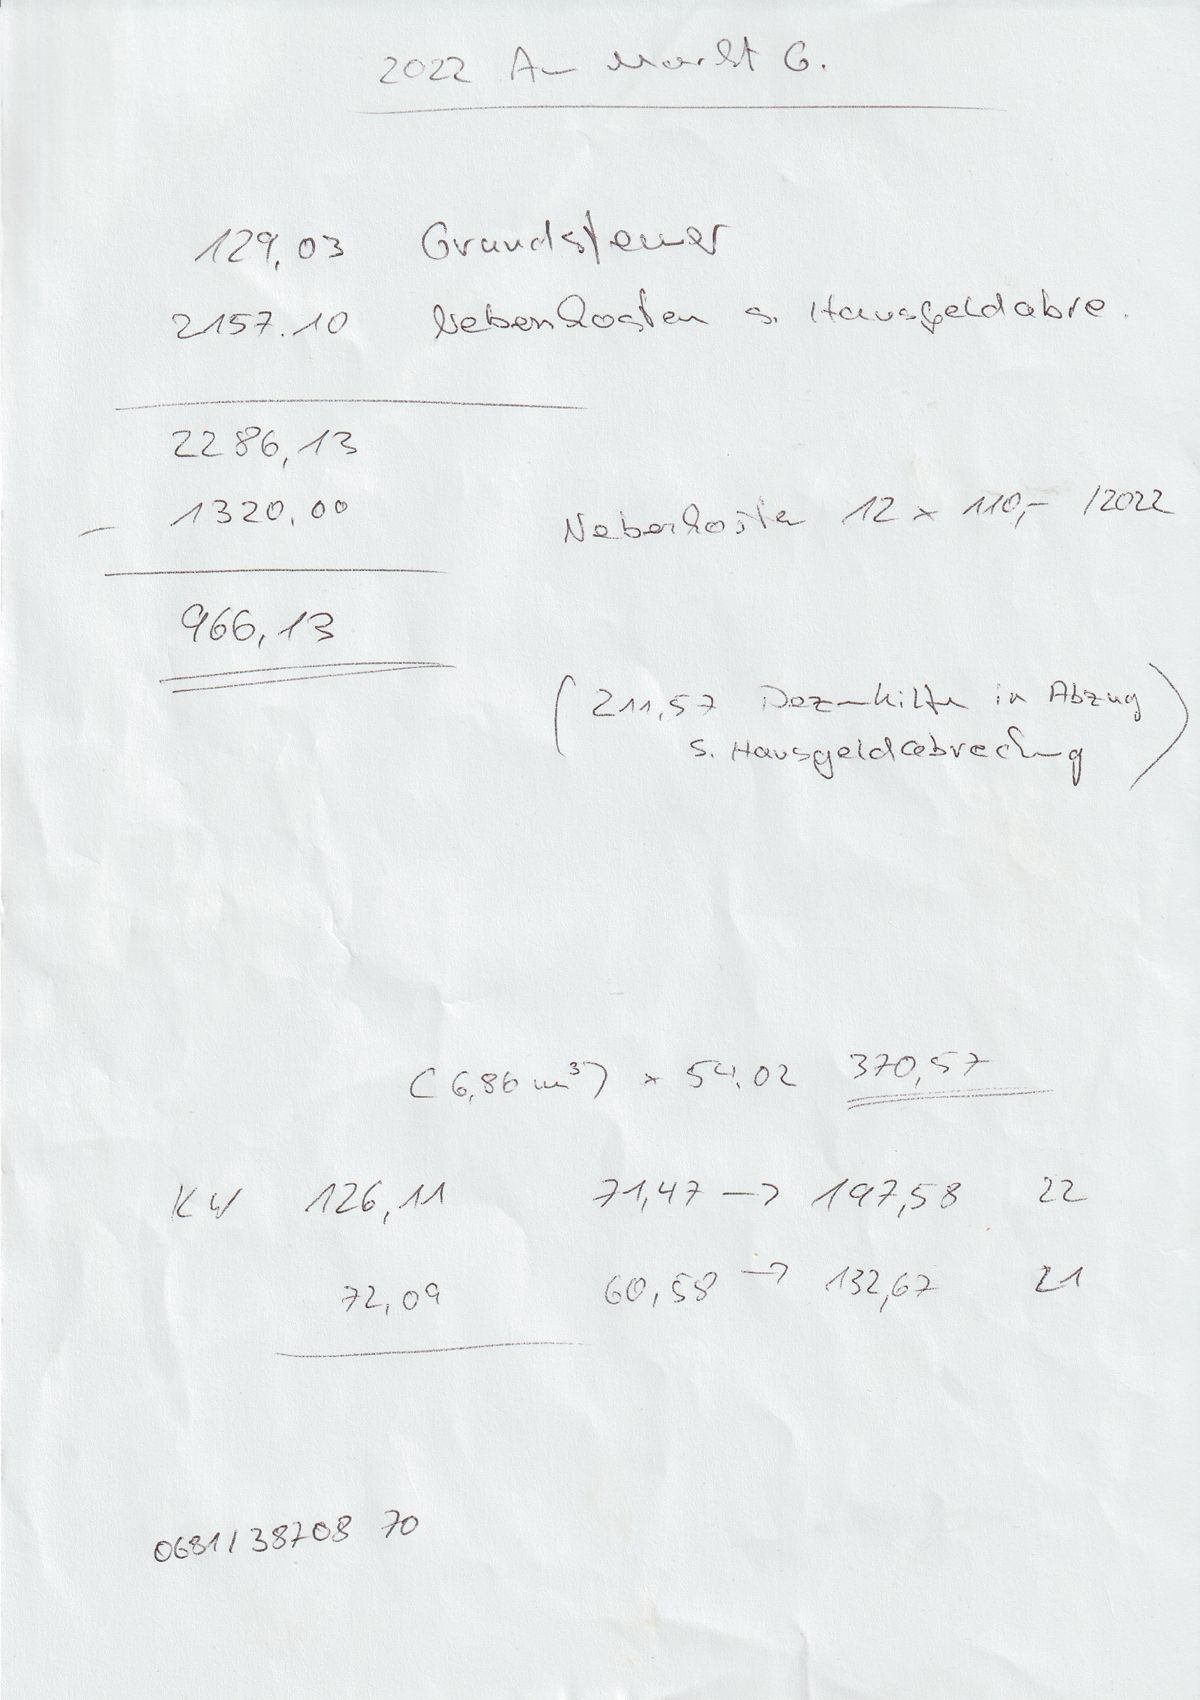 2022 Am Markt 6.
129,03 Grundsteuer
2157.10 Nebenkosten s. Hausgeldabre.
2286,13
- 1320,00 Nebenkosten 12 x 110,- /2022
966,13
(211,57 Dezemhilfe in Abzug
s. Hausgeldabrechnung)
(6,86 m³) x 54,02 370,57
KW 126,11 71,47 → 197,58 22
72,09 60,58 → 132,67 21
0681/38708 70